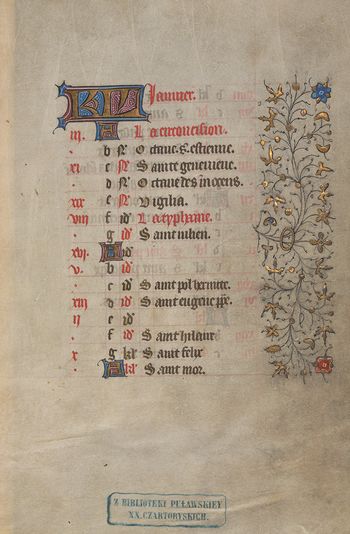 KL Januier.
iii. A La circoncision.
b N Octaue. s. estienne.
xi c N Sainte geneuieue.
d N Octaue des inocens.
xix e N Vigilia.
viii f id La typhaine.
g id Saint iulien.
xvi. A id
v. b id
c id Saint pol hermite.
xiii d id Saint eugene
ii e id
f id Saint hilaire
x g kl Saint felix
A kl Saint mor.
Z BIBLIOTEKI PUŁAWSKIEY
XX. CZARTORYSKICH.